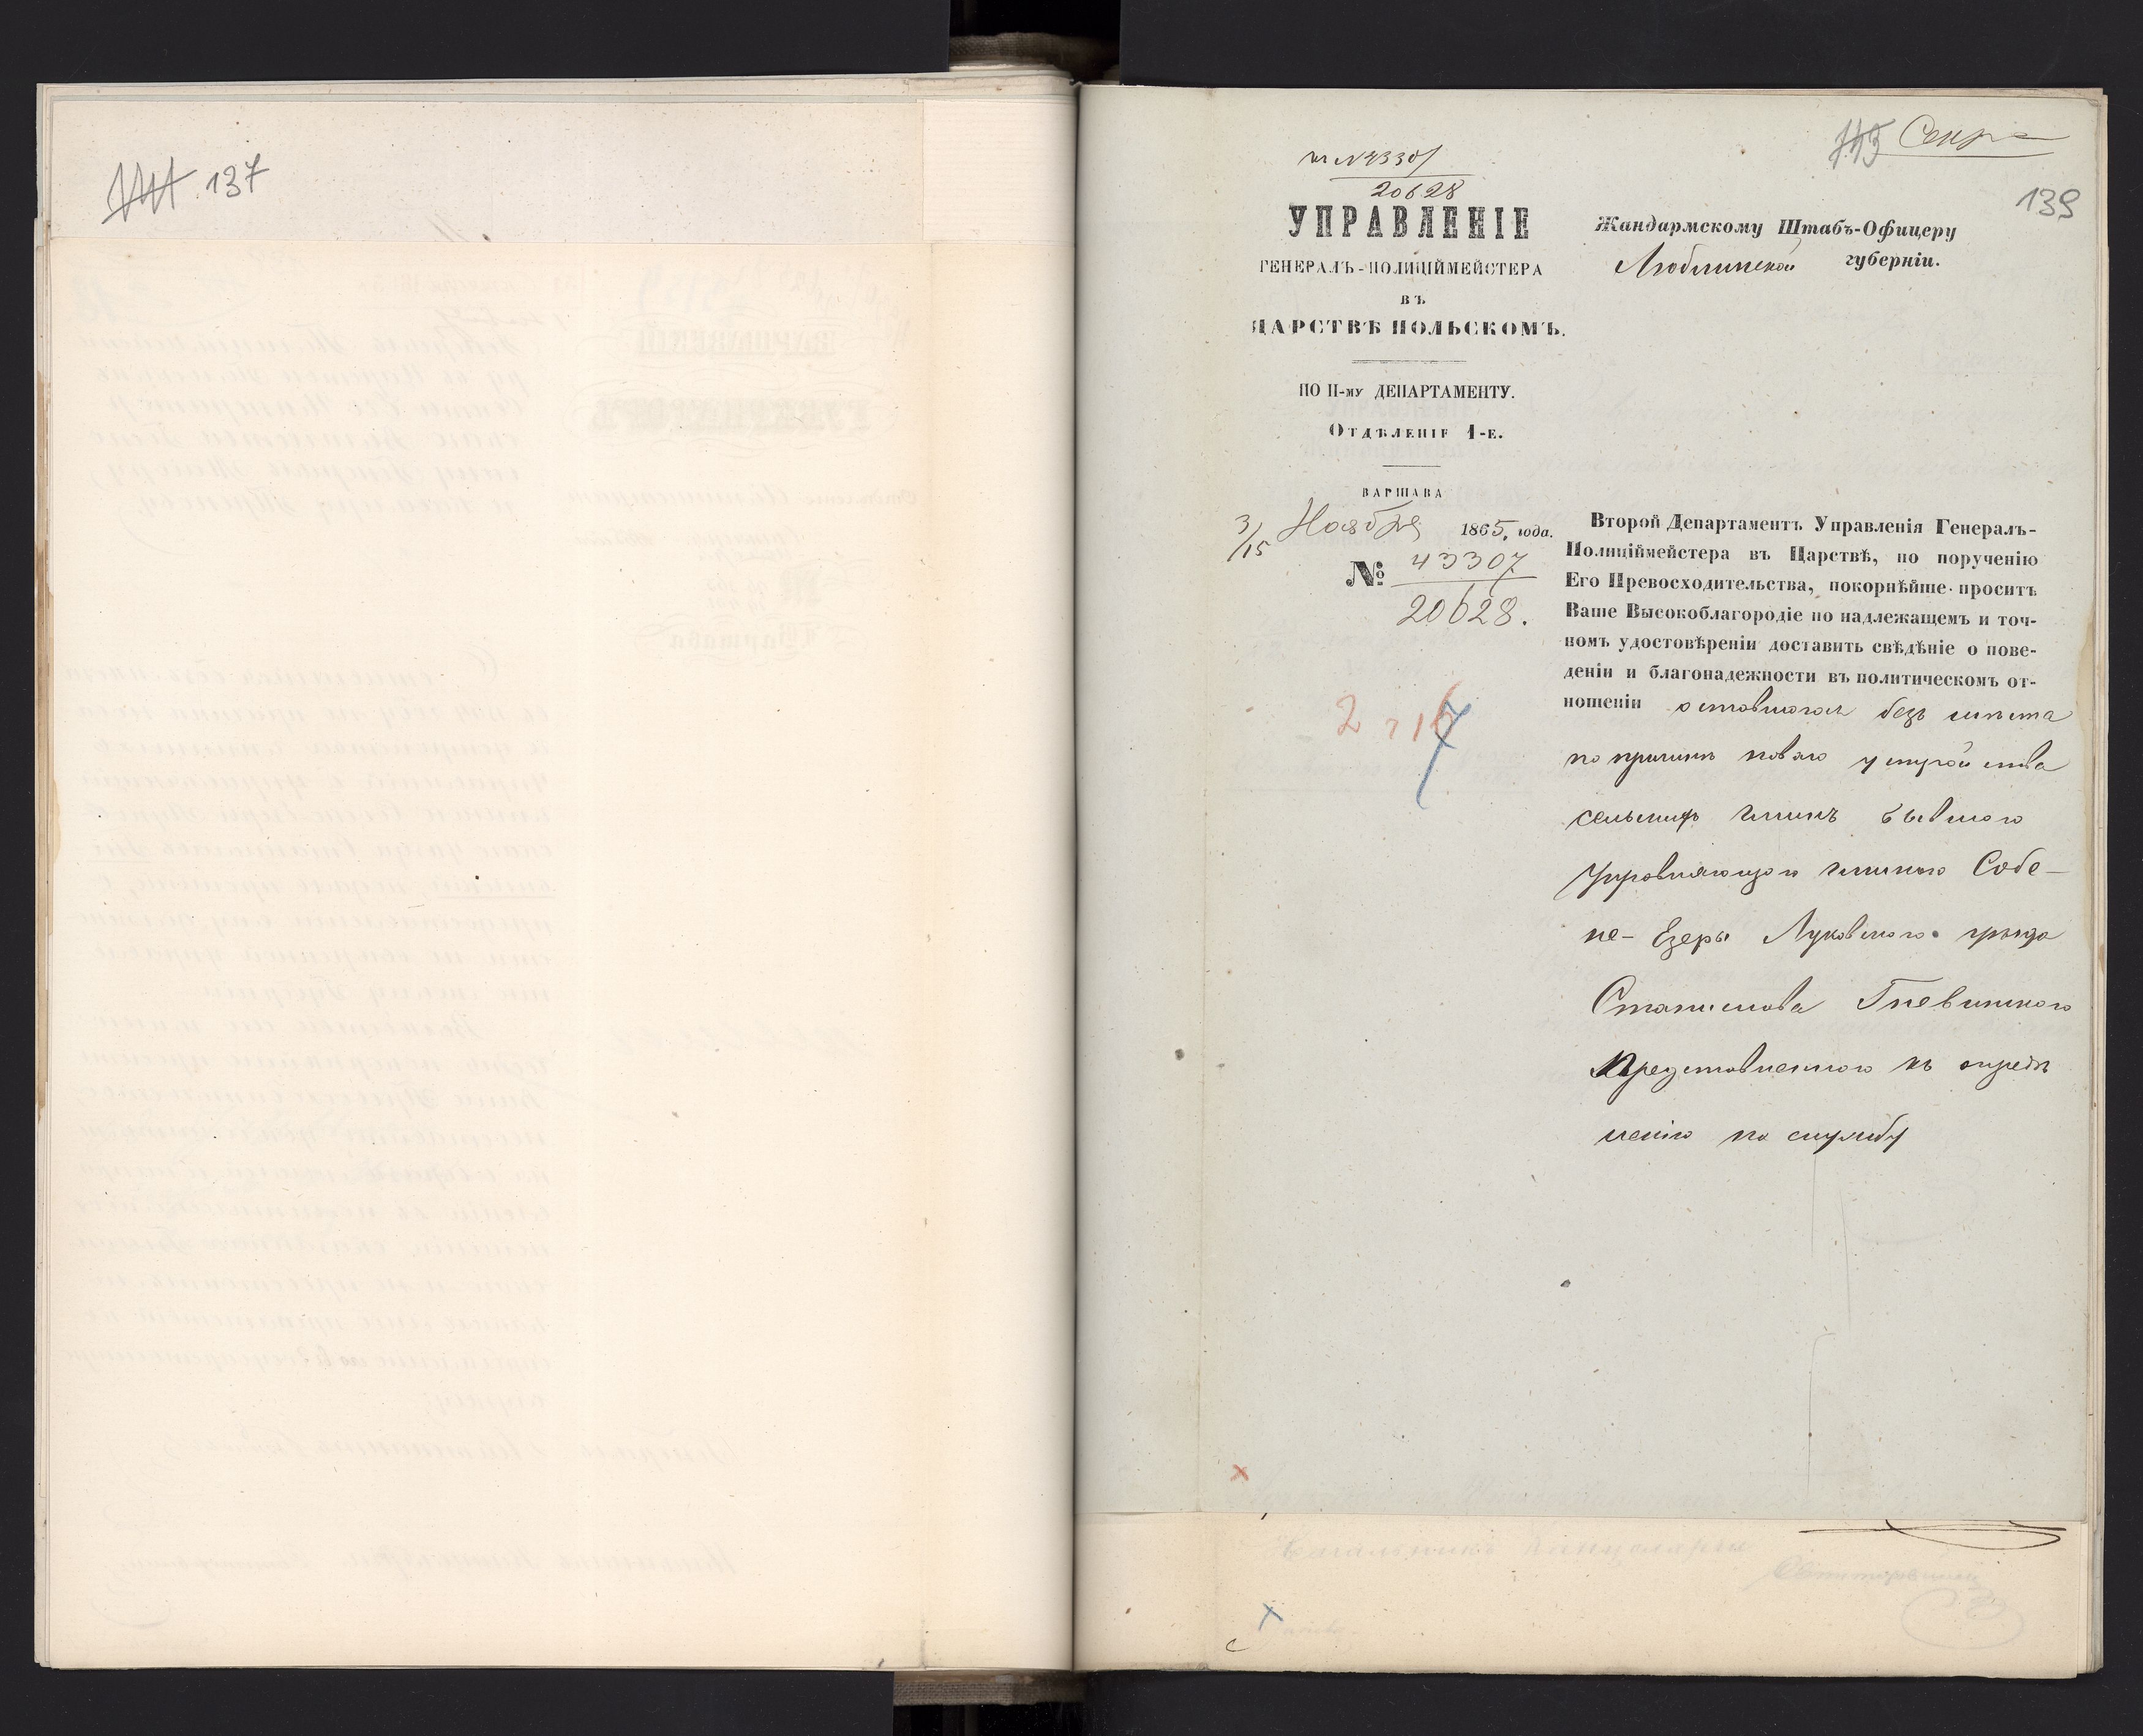 137
№ 43307
20628
Секр
139
УПРАВЛЕНІЕ
ГЕНЕРАЛЪ-ПОЛИЦІЙМЕЙСТЕРА
ВЪ
ЦАРСТВѢ ПОЛЬСКОМЪ.
ПО II-МУ ДЕПАРТАМЕНТУ.
ОТДѢЛЕНІЕ 1-Е.
ВАРШАВА
3/15 Ноября 1865, года.
№ 43307
20628.
Жандармскому Штабъ-Офицеру
Люблинской губерніи.
Второй Департаментъ Управленія Генералъ-
Полиціймейстера въ Царствѣ, по порученію
Его Превосходительства, покорнѣйше проситъ
Ваше Высокоблагородіе по надлежащемъ и точ-
номъ удостовѣреніи доставить свѣдѣніе о пове-
деніи и благонадежности въ политическомъ от-
ношеніи оставшагося безъ мѣста
по причинѣ новаго устройства
сельскихъ гминъ бывшаго
Управляющаго гминою Собе-
не-Езеры Луковскаго уѣзда
Станислава Гневинскаго
представленнаго къ опредѣ
ленію на службу